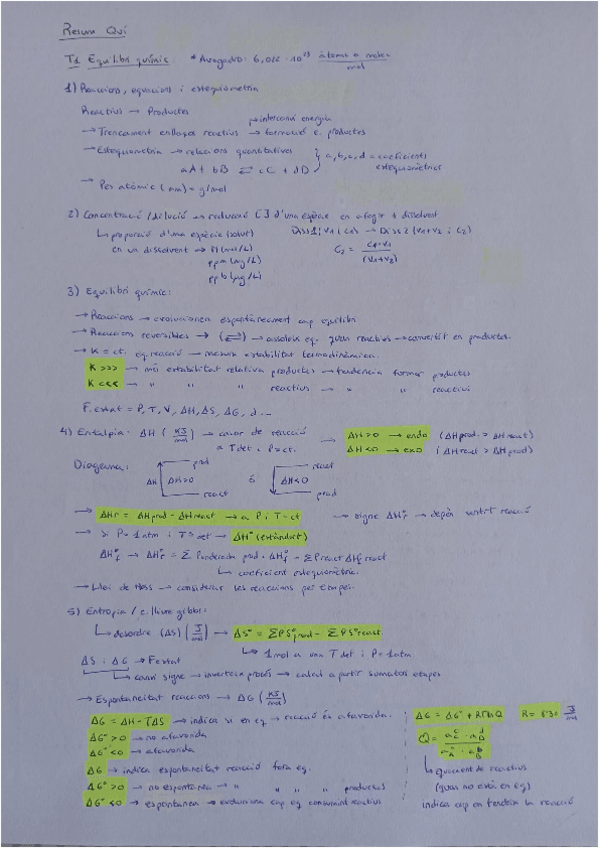 Resum Quí
T1 Equilibri químic: * Avogadro: 6,022 · 10²³ àtoms o molec / mol
1) Reaccions, equacions i estequiometria
Reactius → Productes
→ intercanvi energia
→ Trencament enllaços reactius → formació e. productes
→ Estequiometria → relacions quantitatives
aA + bB ⇄ cC + dD } a, b, c, d = coeficients estequiomètrics
→ Pes atòmic (mm) = g/mol
2) Concentració / dilució → reducció [ ] d'una espècie en afegir + dissolvent
↳ proporció d'una espècie (solut) Diss 1 (V1 i C1) → Diss 2 (V1+V2 i C2)
en un dissolvent → M (mol/L) C2 = C1·V1 / (V1+V2)
ppm (mg/L)
ppb (µg/L)
3) Equilibri químic:
→ Reaccions → evolucionen espontàneament cap equilibri
→ Reaccions reversibles → (⇄) → assoleix eq. quan reactius → convertit en productes.
→ K = ct. eq. reacció → mesura estabilitat termodinàmica.
K >>> → més estabilitat relativa productes → tendencia formar productes
K <<< → " " " reactius → " " reactius
F. estat = P, T, V, ΔH, ΔS, ΔG, d...
4) Entalpia: ΔH (KJ/mol) → calor de reacció → ΔH>0 → endo (ΔHprod. > ΔHreact)
a T det i P=ct. ΔH<0 → exo (ΔHreact > ΔHprod)
Diagrama: prod ó react
ΔH ΔH>0 ΔH<0
react prod
→ ΔHr = ΔHprod - ΔHreact → a P i T = ct → signe ΔH°r → depèn sentit reacció
→ si P = 1atm i T = det → ΔH° (estàndard)
ΔH°f → ΔH°r = Σ Pproducte prod. ΔH°f - Σ Preact ΔH°f react
↳ coeficient estequiomètric.
→ Llei de Hess → considerar les reaccions per etapes.
5) Entropia / e. lliure gibbs:
↳ desordre (ΔS) (J/mol) → ΔS° = ΣPS°prod - ΣPS°react.
↳ 1mol a una T det i P = 1atm
ΔS i ΔG → F estat
↳ canvi signe → inverteix procés → calcul a partir sumatori etapes
→ Espontaneitat reaccions → ΔG (KJ/mol)
ΔG = ΔH - TΔS → indica si en eq → reacció és afavorida.
ΔG° > 0 → no afavorida
ΔG° < 0 → afavorida
ΔG → indica espontaneitat reacció fora eq.
ΔG° > 0 → no espontanea → " " " " productes
ΔG° < 0 → espontanea → evoluciona cap eq consumint reactius
ΔG = ΔG° + RTlnQ R = 8'30 J/mol
Q = a_C^c · a_D^d / a_A^a · a_B^b
↳ quocient de reactius
(quan no està en eq)
indica cap on tendeix la reacció